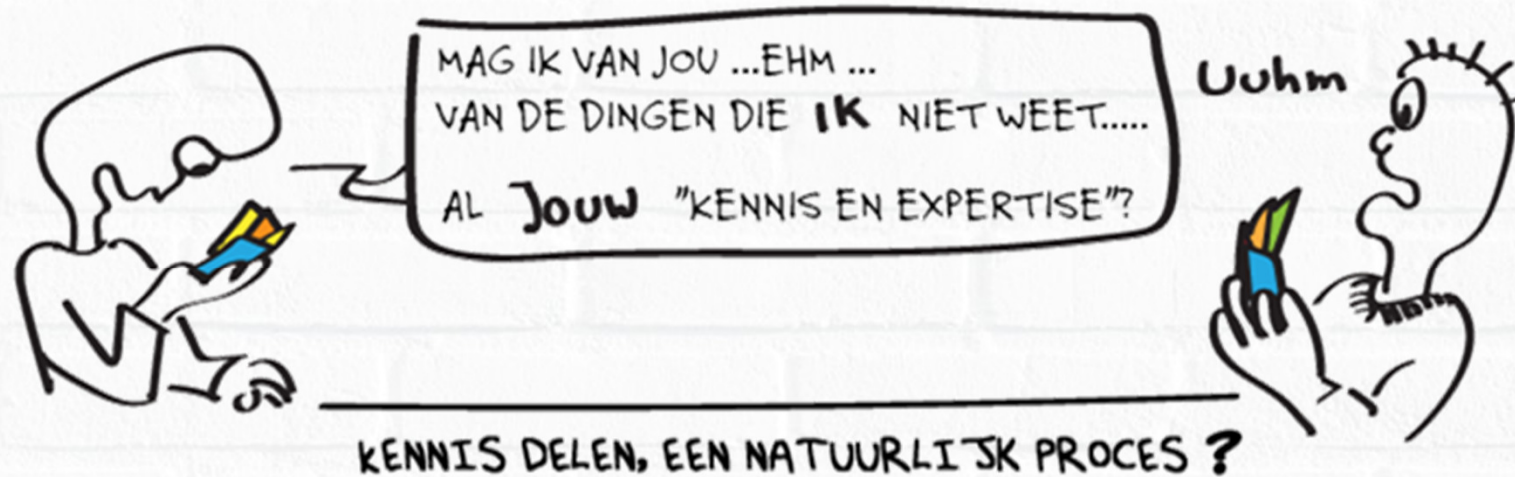 MAG IK VAN JOU ...EHM ...
VAN DE DINGEN DIE IK NIET WEET.....
AL JOUW "KENNIS EN EXPERTISE"?
Uuhm
KENNIS DELEN, EEN NATUURLIJK PROCES ?